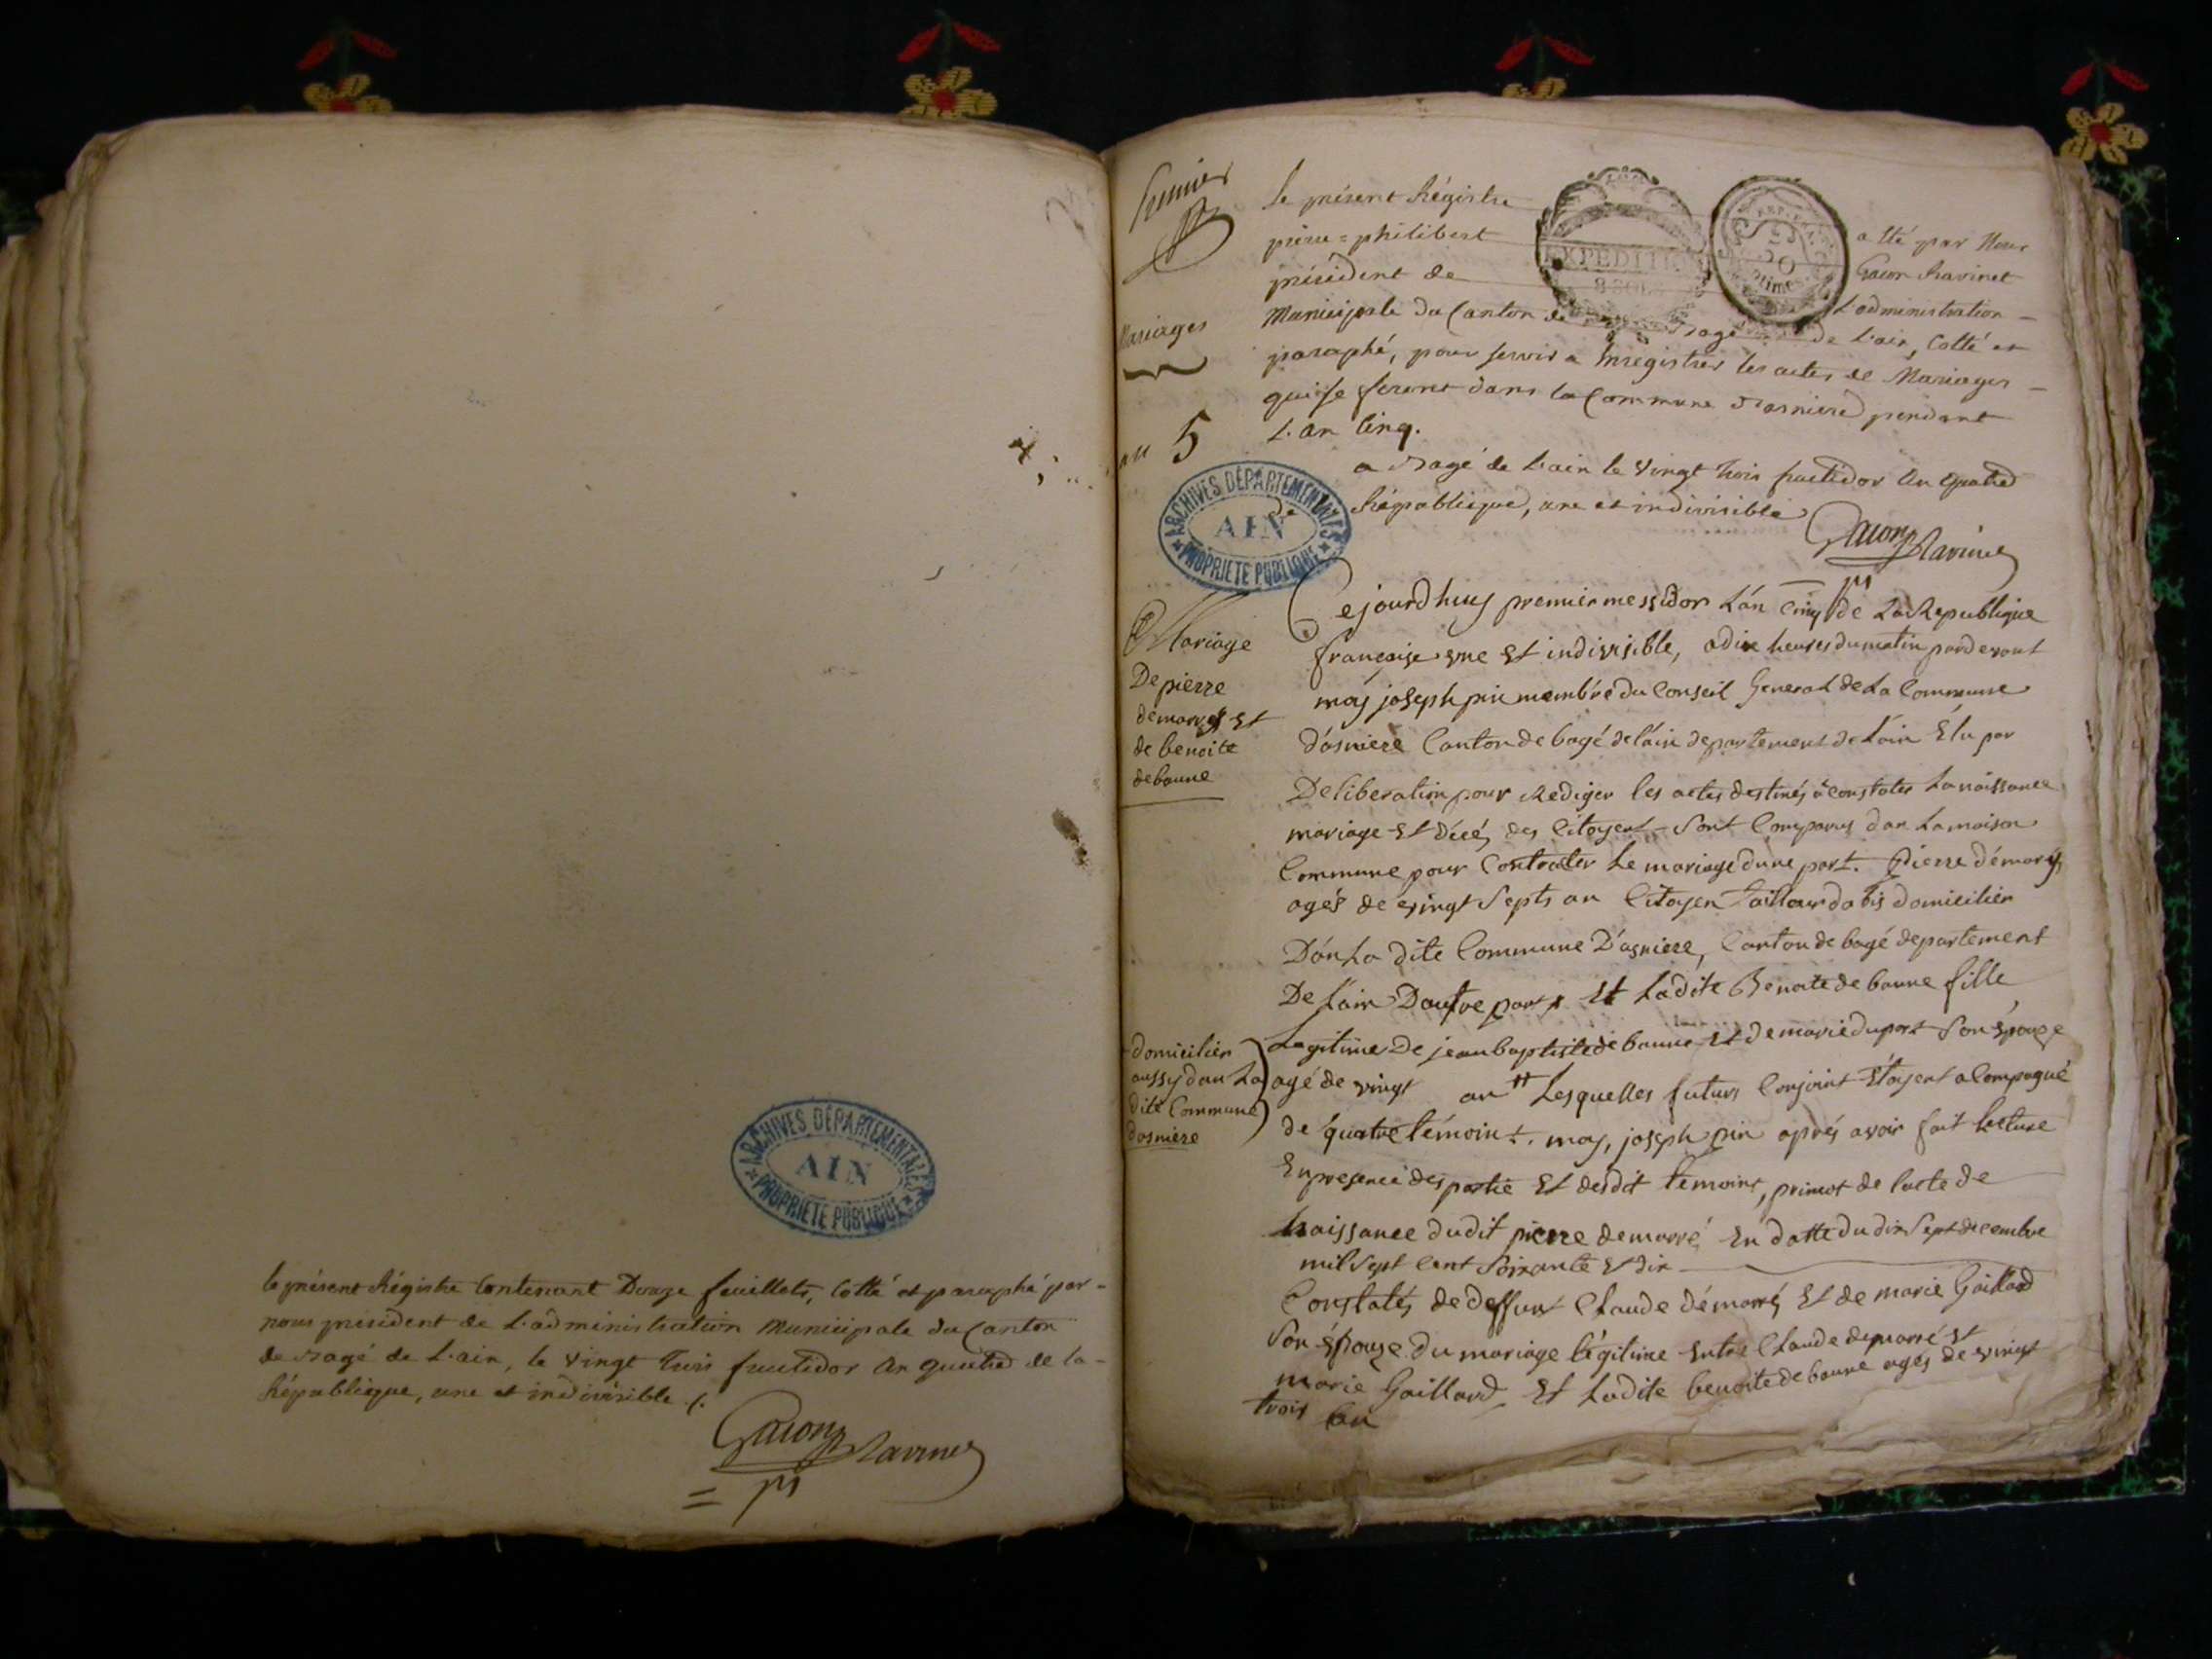 le présent Régistre Contenant Douze feuillets, Cotté et paraphé par =
nous president de L'administration Municipale du Canton
de Bagé de L'ain, le vingt trois fructidor An quatred de la =
République, une et indivisible ./.
Gacon Ravinet
ARCHIVES DÉPARTEMENTALES
AIN
PROPRIETE PUBLIQUE
Premier
Mariages
an 5
le présent Régistre a Eté par Nous
pierre = philibert Gacon Ravinet
président de L'administration =
Municipale du Canton de Bagé de L'ain, Cotté et
paraphé, pour servir a Enregistrer les actes de Mariages =
qui se feront dans la Commune d'asniered pendant
L'an Cinq.
a Bagé de L'ain le vingt trois fructidor An quatred
de République, une et indivisible
Gacon Ravinet
EXPEDITI
8 SOLS
REP. FRA
25
timés
ARCHIVES DÉPARTEMENTALES
AIN
PROPRIETE PUBLIQUE
Mariage
De pierre
demarres Et
de benoite
debaune
Cejourdhuy premier messidor L'an Cinq de La Republique
francaise une Et indivisible, a dix heures du matin pardevant
moy joseph pin membre du Conseil General de La Commune
d'asniere Canton de bagé de l'ain departement de L'ain Elu par
Deliberation pour Rediger les actes destinés a Constater La naissance
mariage Et décés des Citoyent Sont Comparus dan La maison
Commune pour Contracter Le mariage dune part. Pierre démarés
agés de vingt Septs an Citoyen tailleur dabis domicilier
Dan La dite Commune D'asniere, Canton de bagé departement
De L'ain Dautre part Et Ladite Benoite de baune fille
Legitime De jean baptiste de baune Et de marie duport Son Epouze
agé de vingt an # Lesquelles futurs Conjoint Etoyent aCompagné
domicilier
aussy dan La
dite Commune
dasniere
de quatre témoint. moy, joseph pin aprés avoir fait lecture
En presence des partie Et desdit témoint, primot de lacte de
naissance dudit pierre demarré En datte du dix Sept decembre
mil Sept Cent Soixante Et dix
Constatés de deffunt Claude démarré Et de marie Gaillard
Son Epouze du mariage légitime Entre Claude demarré Et
marie Gaillard, Et Ladite benoite de baune agés de vingt
trois an